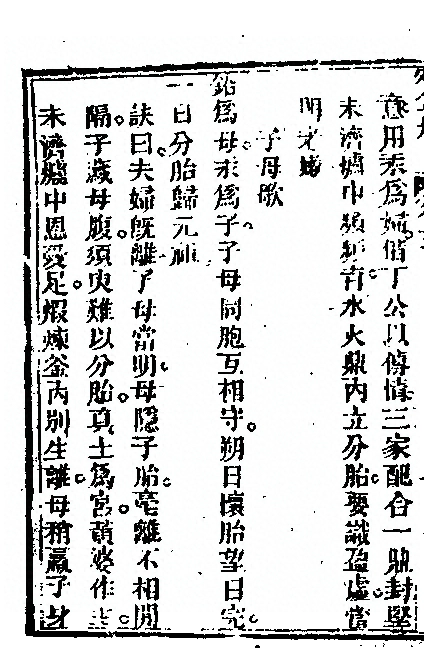 意用汞為婦借丁公以傳情三家配合一鼎封堅
未濟爐中頻頻看水火鼎內立分胎要識盈虛當
明老嫩
子母歌
鉛為母汞為子子母同胞互相守朔日懷胎望日完
一日分胎歸元祖
訣曰夫婦既離子母當明母隱子胎毫離不相間
隔子藏母腹須臾難以分胎真土為宮黃婆作主
未濟爐中恩愛足煅煉釜內別生離母稍羸子身